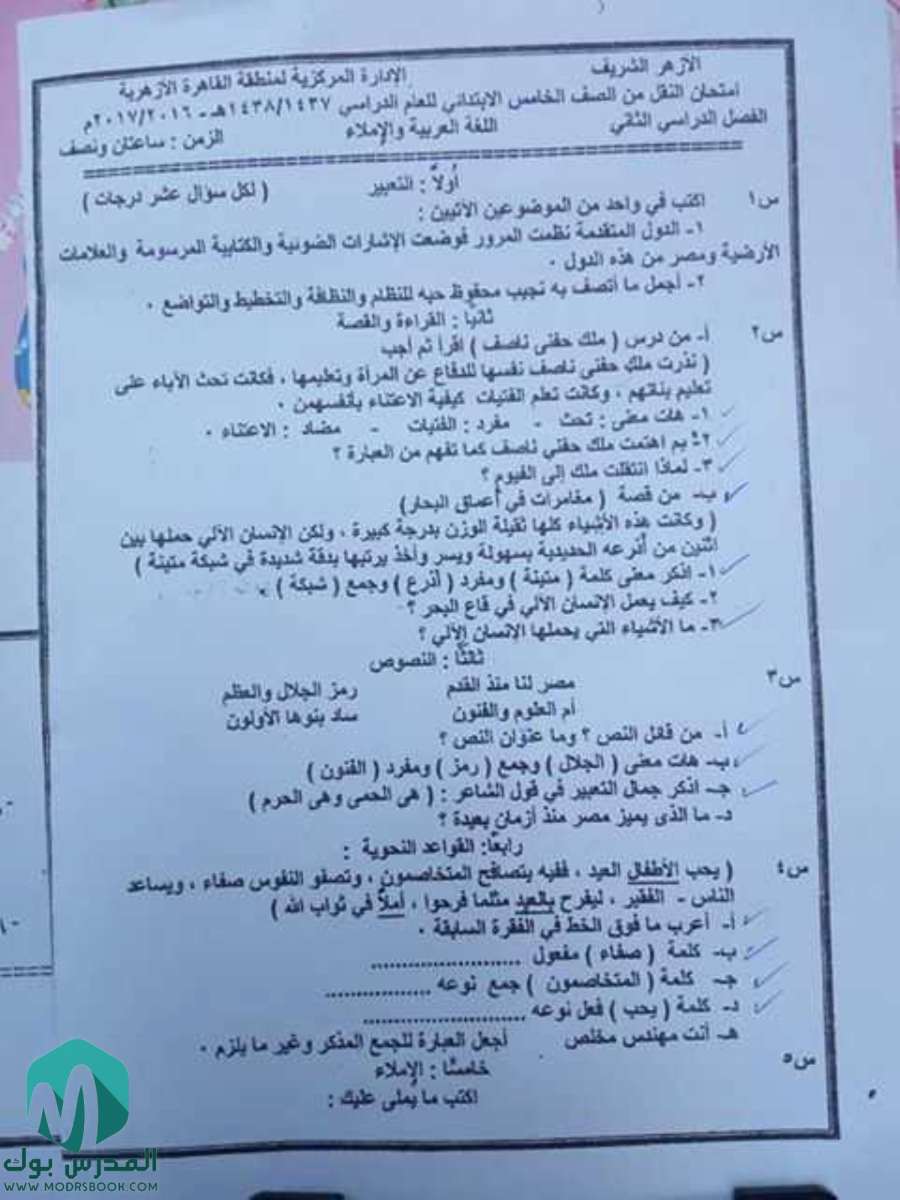 الأزهر الشريف الإدارة المركزية لمنطقة القاهرة الأزهرية
امتحان النقل من الصف الخامس الابتدائي للعام الدراسي ١٤٣٨/١٤٣٧هـ - ٢٠١٧/٢٠١٦م
الفصل الدراسي الثاني اللغة العربية والإملاء الزمن : ساعتان ونصف
أولاً : التعبير ( لكل سؤال عشر درجات )
س١ اكتب في واحد من الموضوعين الآتيين :
١- الدول المتقدمة نظمت المرور فوضعت الإشارات الضوئية والكتابية المرسومة والعلامات
الأرضية ومصر من هذه الدول .
٢- أجمل ما أتصف به نجيب محفوظ حبه للنظام والنظافة والتخطيط والتواضع .
ثانياً : القراءة والقصة
س٢ أ- من درس ( ملك حفنى ناصف ) اقرأ ثم أجب
( نذرت ملك حفنى ناصف نفسها للدفاع عن المرأة وتعليمها ، فكانت تحث الآباء على
تعليم بناتهم ، وكانت تعلم الفتيات كيفية الاعتناء بأنفسهن .
١- هات معنى : تحث - مفرد : الفتيات - مضاد : الاعتناء .
٢- بم اهتمت ملك حفني ناصف كما تفهم من العبارة ؟
٣- لماذا انتقلت ملك إلى الفيوم ؟
ب- من قصة ( مغامرات في أعماق البحار)
( وكانت هذه الأشياء كلها ثقيلة الوزن بدرجة كبيرة ، ولكن الإنسان الآلي حملها بين
اثنين من أذرعه الحديدية بسهولة ويسر وأخذ يرتبها بدقة شديدة في شبكة متينة )
١- اذكر معنى كلمة ( متينة ) ومفرد ( أذرع ) وجمع ( شبكة ) .
٢- كيف يعمل الإنسان الآلي في قاع البحر ؟
٣- ما الأشياء التي يحملها الإنسان الآلي ؟
ثالثاً : النصوص
س٣ مصر لنا منذ القدم رمز الجلال والعظم
أم العلوم والفنون ساد بنوها الأولون
أ- من قائل النص ؟ وما عنوان النص ؟
ب- هات معنى ( الجلال ) وجمع ( رمز ) ومفرد ( الفنون )
جـ- اذكر جمال التعبير في قول الشاعر : ( هى الحمى وهى الحرم )
د- ما الذى يميز مصر منذ أزمان بعيدة ؟
رابعاً: القواعد النحوية :
س٤ ( يحب الأطفال العيد ، ففيه يتصافح المتخاصمون ، وتصفو النفوس صفاء ، ويساعد
الناس - الفقير ، ليفرح بالعيد مثلما فرحوا ، أملاً في ثواب الله )
أ- أعرب ما فوق الخط في الفقرة السابقة .
ب- كلمة ( صفاء ) مفعول ........................
جـ- كلمة ( المتخاصمون ) جمع نوعه .................
د- كلمة ( يحب ) فعل نوعه ..........................
هـ- أنت مهندس مخلص أجعل العبارة للجمع المذكر وغير ما يلزم .
س٥ خامسًا : الإملاء
اكتب ما يملى عليك :
المدرس بوك
WWW.MODRSBOOK.COM